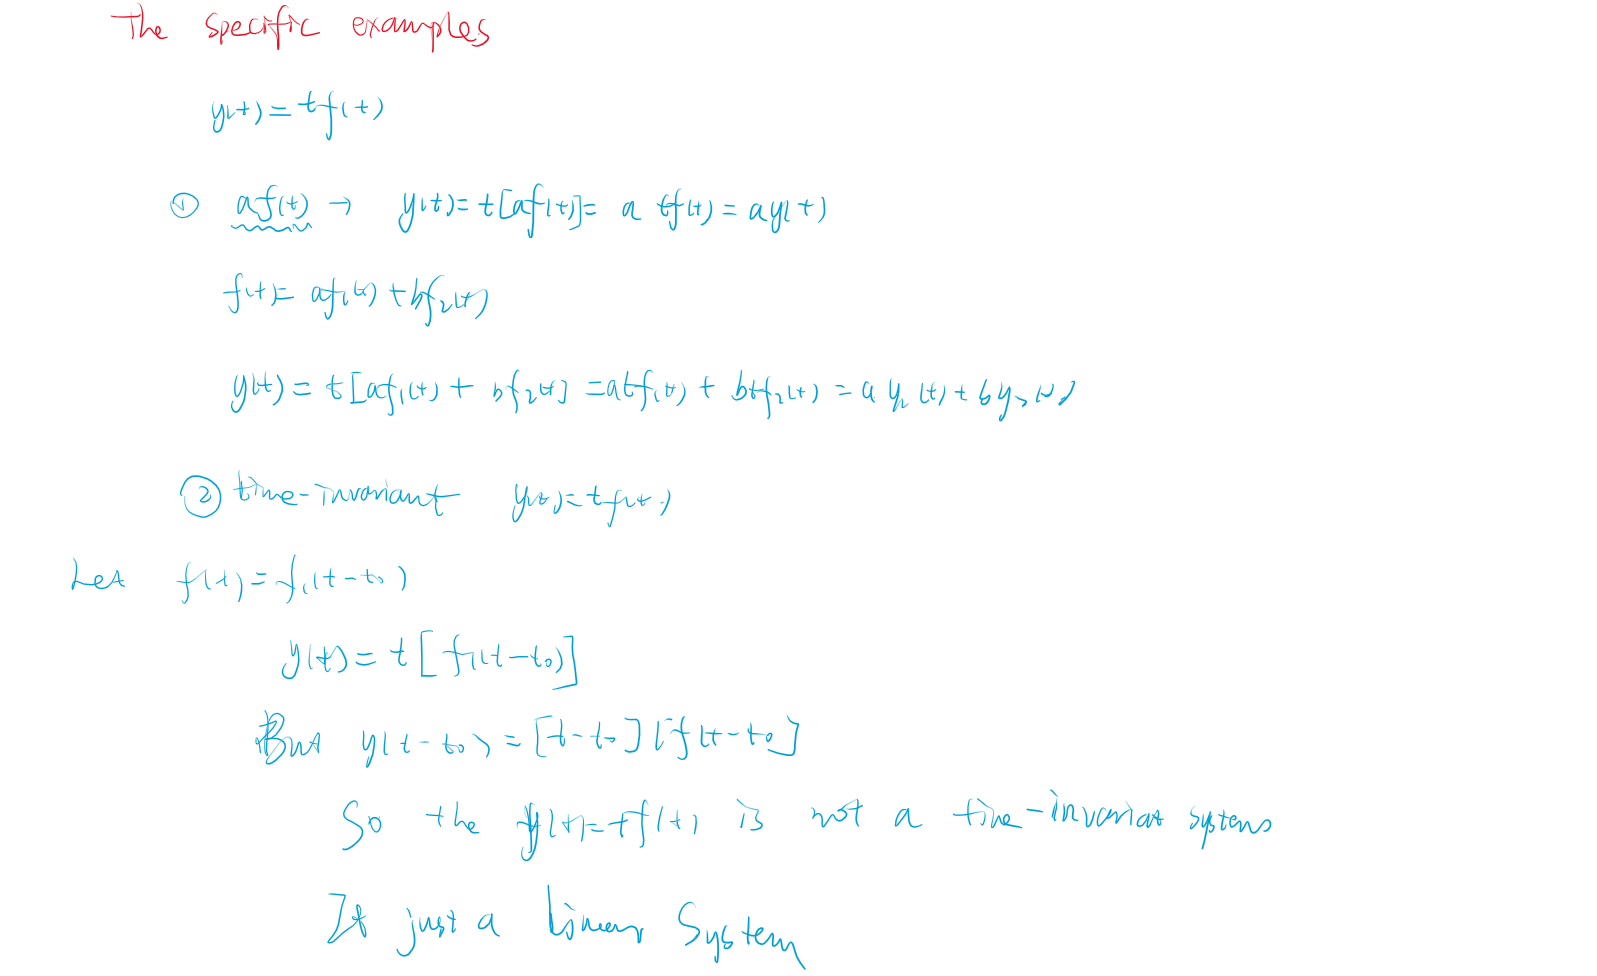 The specific examples
y(t)=tf(t)
① af(t) → y(t)=t[af(t)]= a tf(t) = ay(t)
f(t)= af₁(t) +bf₂(t)
y(t) = t[af₁(t) + bf₂(t)] =atf₁(t) + btf₂(t) = a y₁(t) + by₂(t)
② time-invariant y(t)=tf(t)
Let f(t)=f₁(t-t₀)
y(t) = t[f₁(t-t₀)]
But y(t-t₀) = [t-t₀][f(t-t₀]
So the y(t)=tf(t) is not a time-invariat systems
It just a Linear System